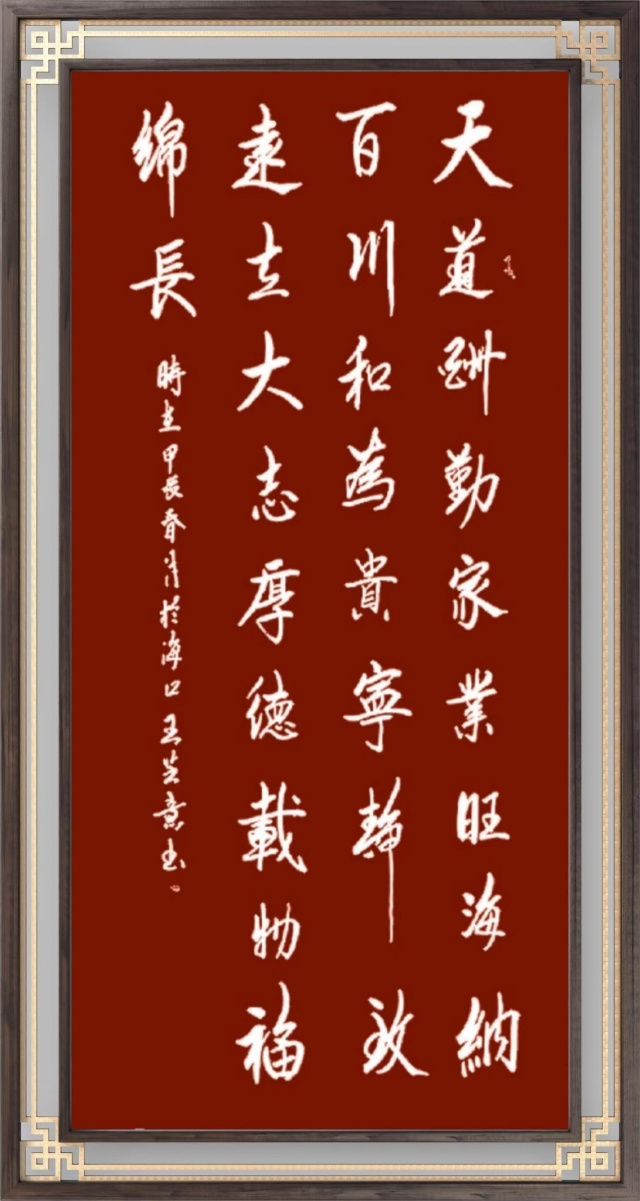 天道酬勤家業旺海納
百川和為貴寧靜致
遠立大志厚德載物福
綿長
時在甲辰春月於海口王芸意書